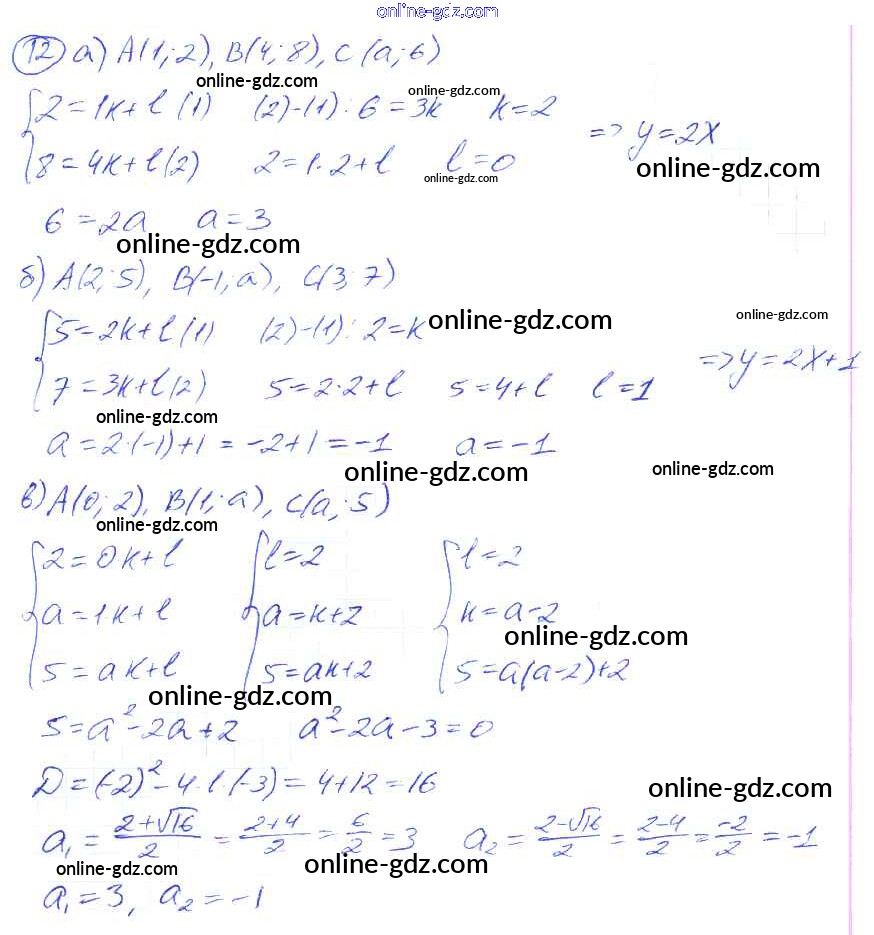 online-gdz.com
12 а) A(1; 2), B(4; 8), C(a; 6)
online-gdz.com online-gdz.com
{ 2=1k+l (1) (2)-(1): 6=3k k=2
=> y=2x
8=4k+l (2) 2=1·2+l l=0 online-gdz.com
online-gdz.com
6=2a a=3
online-gdz.com
б) A(2; 5), B(-1; a), C(3; 7)
{ 5=2k+l (1) (2)-(1): 2=k online-gdz.com online-gdz.com
=> y=2x+1
7=3k+l (2) 5=2·2+l 5=4+l l=1
online-gdz.com
a=2·(-1)+1=-2+1=-1 a=-1
online-gdz.com online-gdz.com
в) A(0; 2), B(1; a), C(a; 5)
online-gdz.com
{ 2=0k+l { l=2 { l=2
a=1k+l a=k+2 k=a-2
online-gdz.com
5=ak+l 5=ak+2 5=a(a-2)+2
online-gdz.com
5=a²-2a+2 a²-2a-3=0
D=(-2)²-4·1·(-3)=4+12=16
online-gdz.com
a₁=(2+√16)/2=(2+4)/2=6/2=3 a₂=(2-√16)/2=(2-4)/2=-2/2=-1
online-gdz.com online-gdz.com
a₁=3, a₂=-1